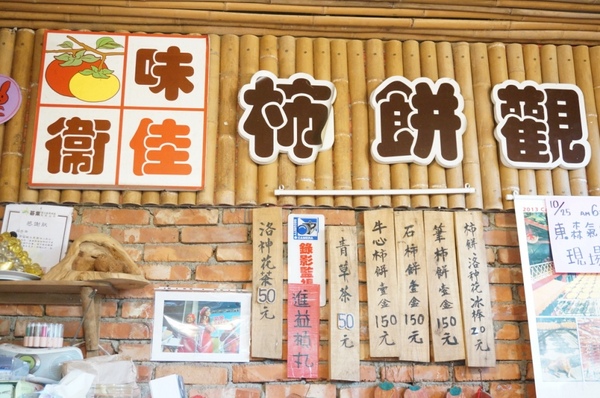 味
衛佳
柿餅觀
感謝狀
洛神花茶50元
錄影監視
進益利丸
青草茶50元
牛心柿餅壹盒150元
石柿餅壹盒150元
筆柿餅壹盒150元
柿餅.洛神花冰棒20元
10/25 AM 6
東森氣
現場